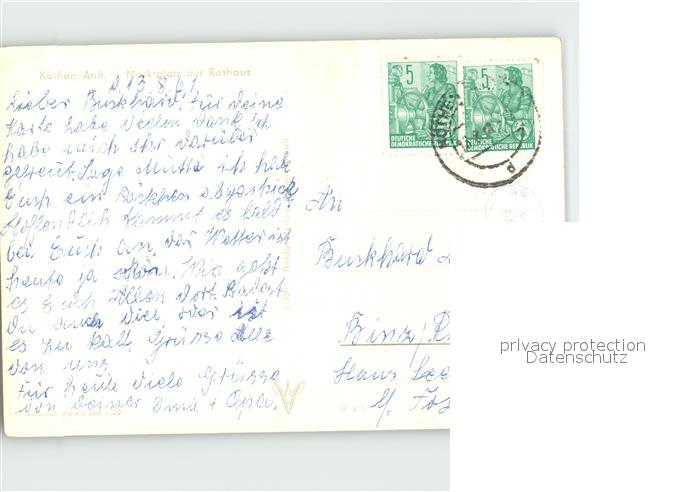 Köthen/Anh. Marktplatz mit Rathaus
d. 13.8.61
Lieber Burkhard, für deine
Karte habe vielen Dank ich
habe mich sehr darüber
gefreut. Sage Mutti ich hab
Euch ein Päckchen abgeschickt
Hoffendlich kommt es bald
bei Euch an, das Wetter ist
heute ja schön. Wie geht
es Euch Allen dort. Badest
du auch viel oder ist
es zu kalt. Grüsse Alle
von uns
Für heute viele Grüsse
von deiner Oma + Opa.
5
DEUTSCHE
DEMOKRATISCHE
5
DEUTSCHE
DEMOKRATISCHE REPUBLIK
KÖTHEN
d
An
Burkhard
Binz/R
Haus See
privacy protection
Datenschutz